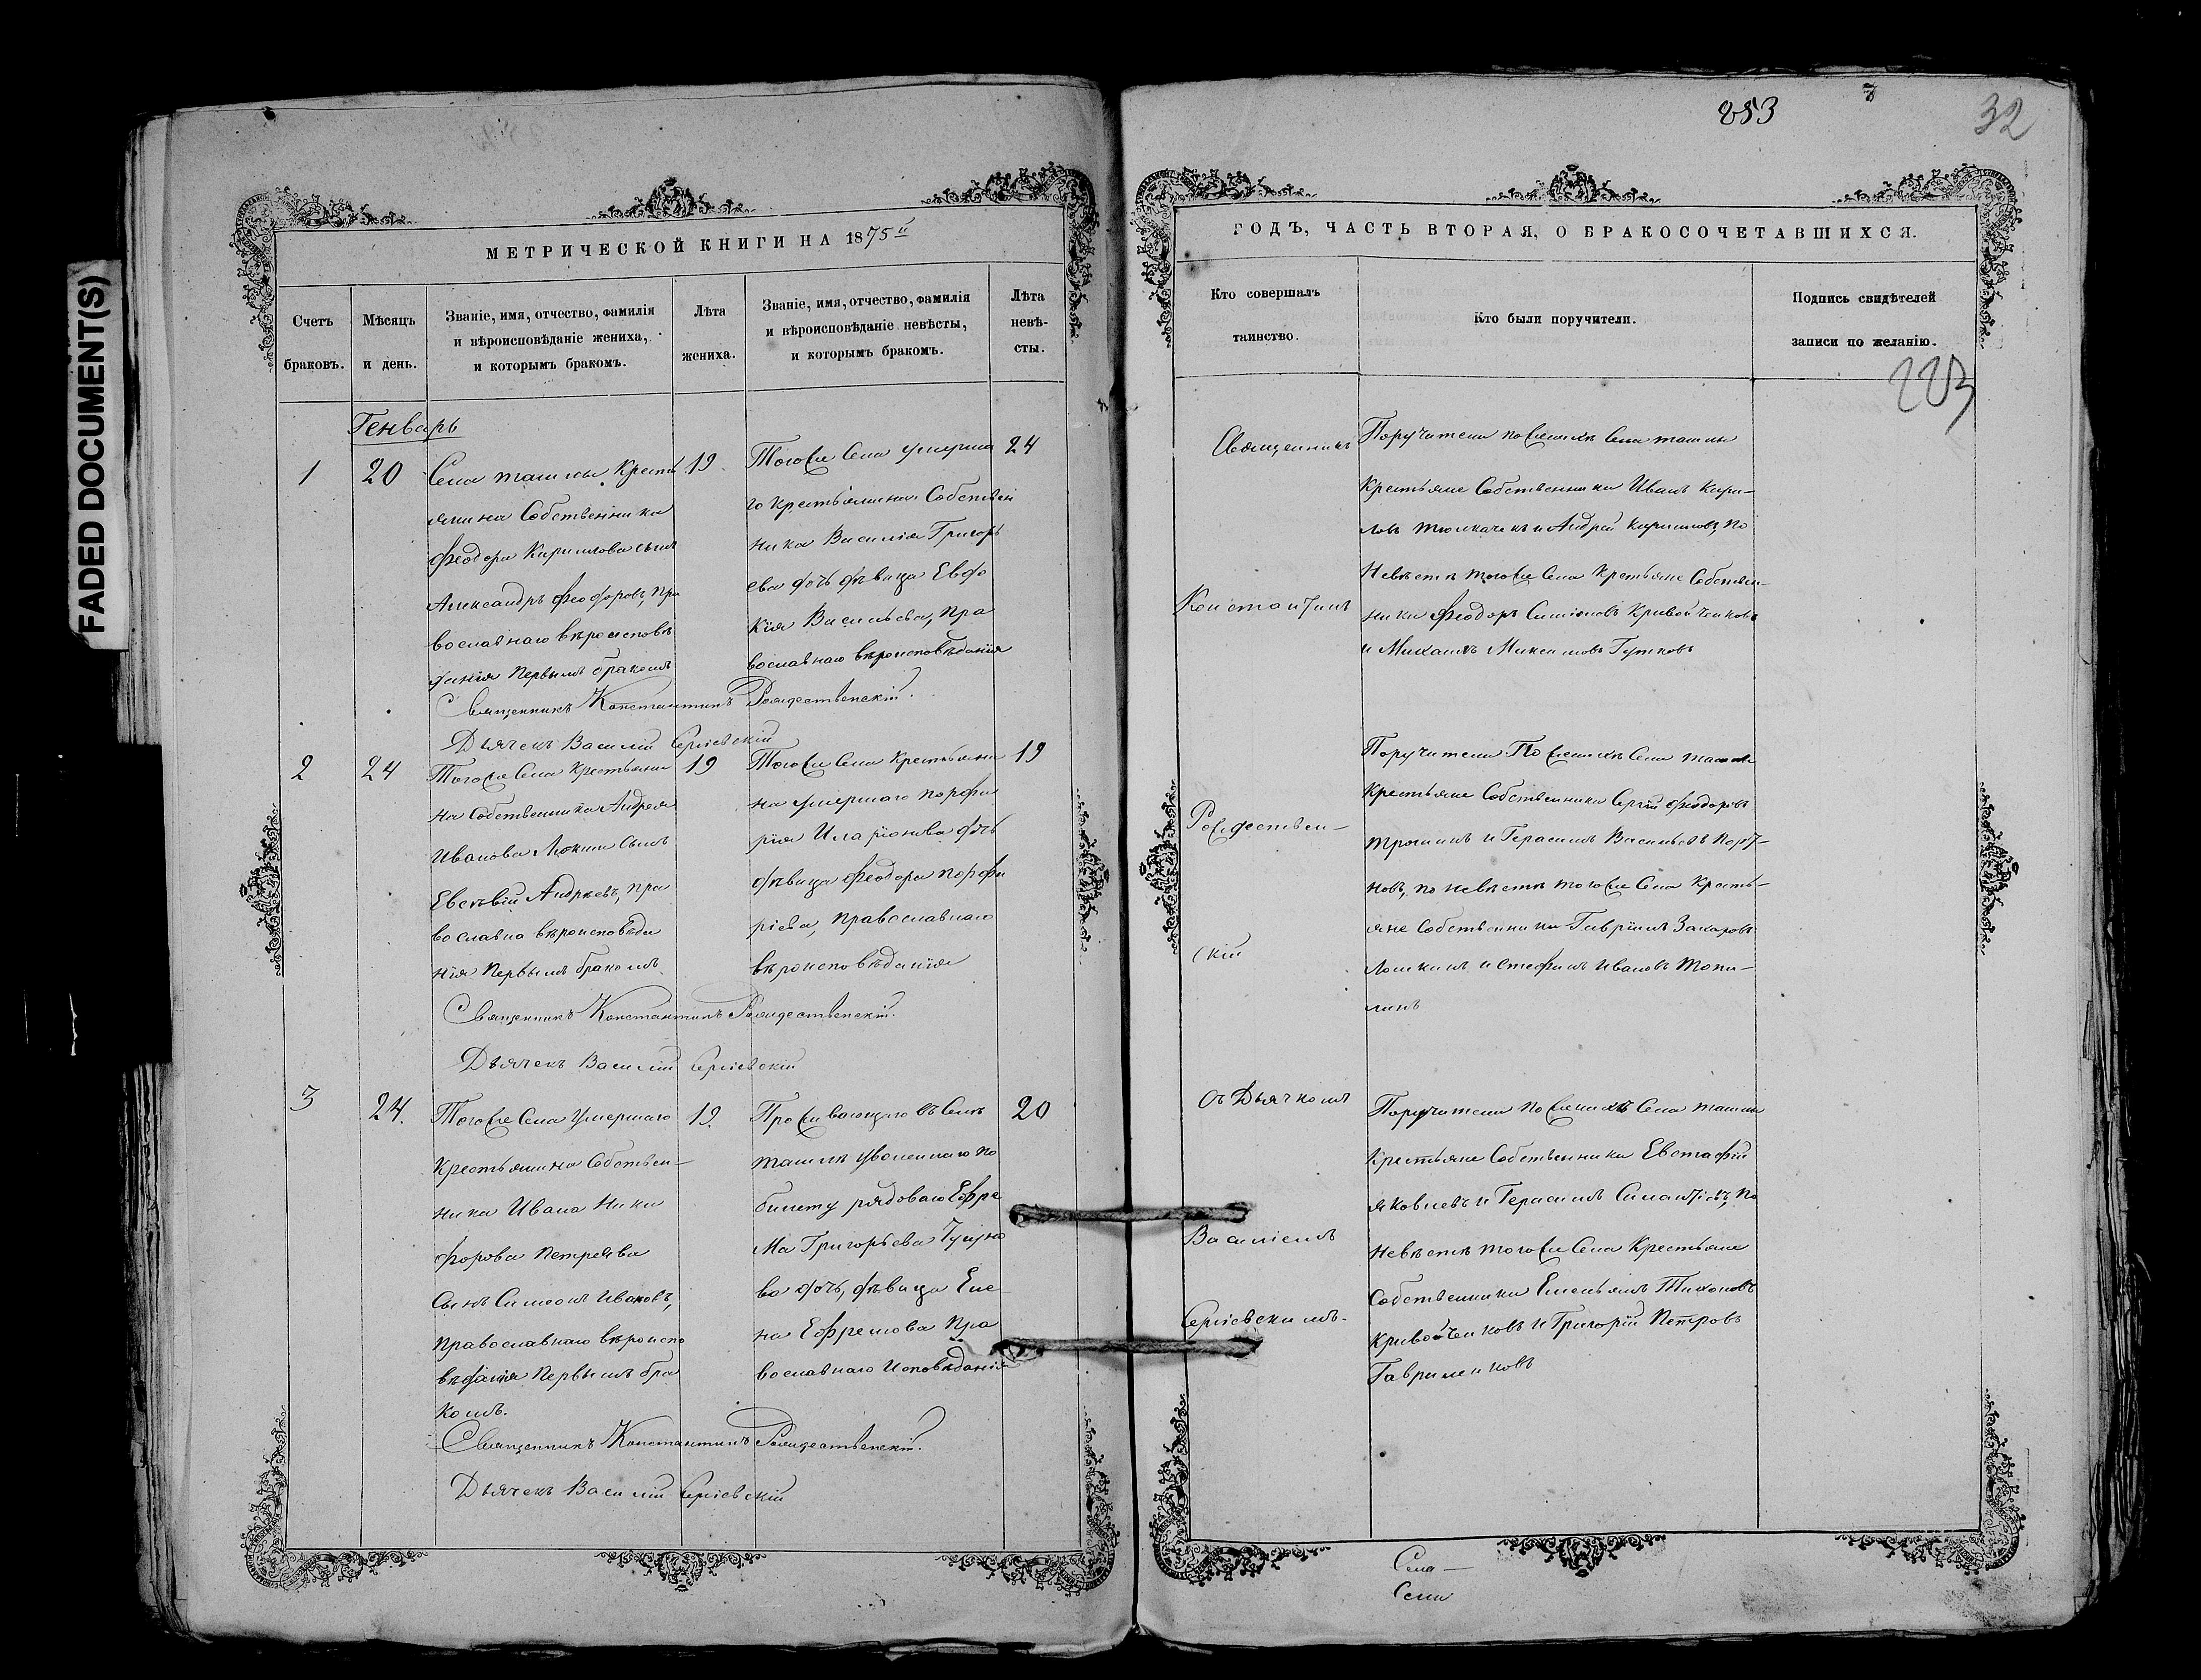 FADED DOCUMENT(S)
МЕТРИЧЕСКОЙ КНИГИ НА 1875й
Счетъ браковъ.
Мѣсяцъ и день.
Званіе, имя, отчество, фамилія
и вѣроисповѣданіе жениха,
и которымъ бракомъ.
Лѣта жениха.
Званіе, имя, отчество, фамилія
и вѣроисповѣданіе невѣсты,
и которымъ бракомъ.
Лѣта невѣ-
сты.
Генварь
1
20
Села Ташлы Кресть
янина Собственника
Феодора Кирилова сынъ
Александръ Феодоровъ, Пра
вославнаго вѣроисповѣ
данія Первымъ бракомъ
19
Тогоже Села умерша
го Крестьянина Собствен
ника Василія Григорь
ева дочь дѣвица Евдо
кія Васильева, Пра
вославнаго вѣроисповѣданія
24
Священникъ Константинъ Рождественскій.
Дьячекъ Василій Сергіевскій
2
24
Тогоже Села Крестьяни
на Собственника Андрея
Иванова Сынъ
Андреевъ, Пра
вославна вѣроисповѣда
нія Первымъ бракомъ
19
Тогоже Села Крестьяни
на умершаго Порфи
рія Иларіонова дочь
дѣвица Феодора Порфи
ріева, Православнаго
вѣроисповѣданія
19
Священникъ Константинъ Рождественскій.
Дьячекъ Василій Сергіевскій
3
24.
Тогоже Села Умершаго
Крестьянина Собствен-
ника Ивана Ники
форова
Сынъ Симеонъ Ивановъ,
Православнаго вѣроиспо
вѣданія Первымъ бра
комъ.
19.
Проживающаго въ Селѣ
Ташлѣ уволеннаго по
билету рядоваго Ефре
ма Григорьева
ва дочь, дѣвица Еле
на Ефремова Пра
вославнаго Исповѣданія
20
Священникъ Константинъ Рождественскій.
Дьячекъ Василій Сергіевскій
253
32
ГОДЪ, ЧАСТЬ ВТОРАЯ, О БРАКОСОЧЕТАВШИХСЯ.
Кто совершалъ
таинство.
Кто были поручители.
Подпись свидѣтелей
записи по желанію.
Священникъ
Константинъ
Рождествен-
скій
съ Дьячкомъ
Василіемъ
Сергіевскимъ.
Поручители по женихѣ Села Ташлы
Крестьяне Собственники Иванъ Кири-
ловъ и Андрей Кириловъ, по
Невѣстѣ тогоже Села Крестьяне Собствен-
ники Феодоръ Симіоновъ Кривойченковъ
и Михаилъ Максимовъ
Поручители По женихѣ Села Ташлы
Крестьяне Собственники Сергій Феодоровъ
и Герасимъ Васильевъ
новъ, по невѣстѣ тогоже Села Кресть-
яне Собственники Гавріилъ Захаровъ
и Стефанъ Ивановъ Топи-
линъ
Поручители по женихѣ Села Ташлы
Крестьяне Собственники Евстафій
Яковлевъ и Герасимъ по
невѣстѣ тогоже Села Крестьяне
Собственники Емельянъ Тихоновъ
Кривойченковъ и Григорій Петровъ
Гавриленковъ
Села-
Села